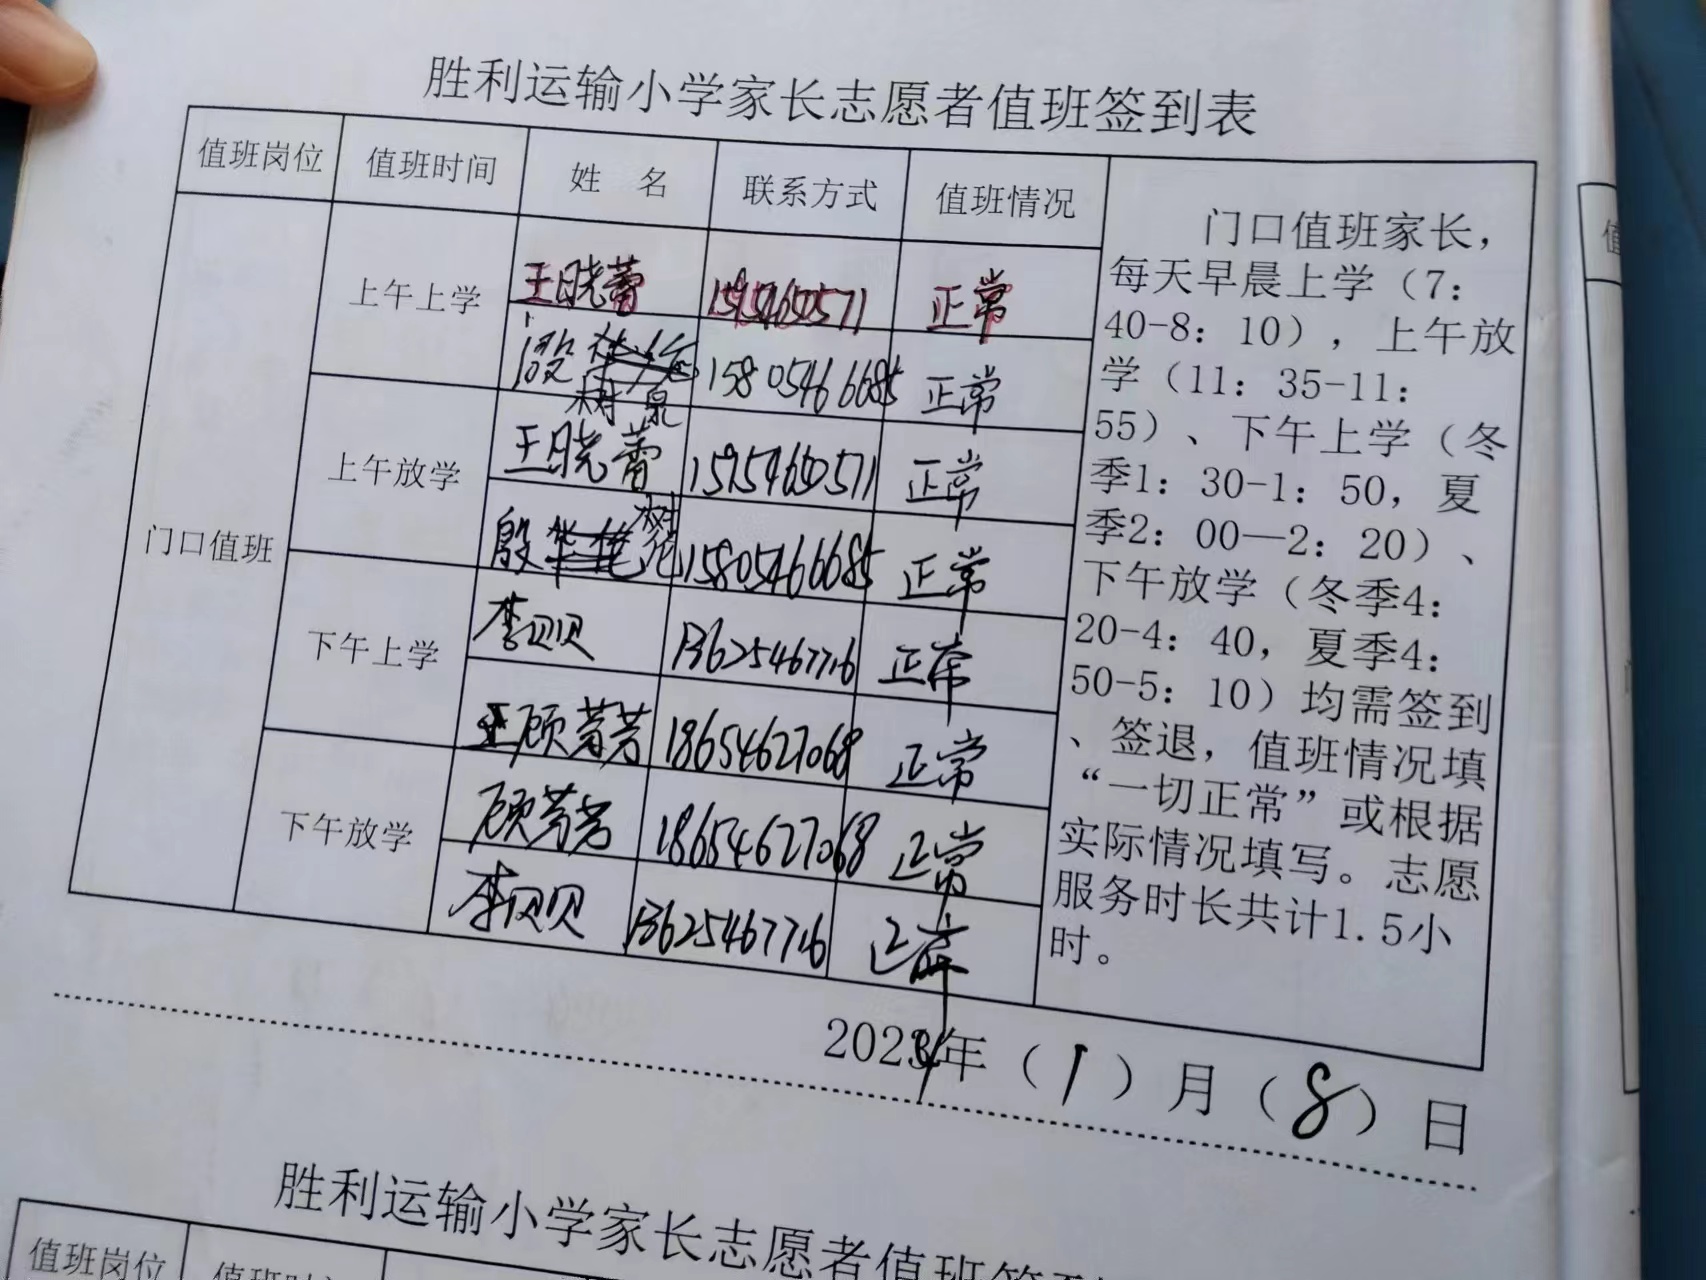 胜利运输小学家长志愿者值班签到表
值班岗位 值班时间 姓 名 联系方式 值班情况
门口值班
上午上学
王晓蕾 15954650571 正常
殷 15805466685 正常
树泉
上午放学
王晓蕾 15954650571 正常
殷树 15805466685 正常
下午上学
李贝贝 13625467716 正常
顾芳芳 18654627068 正常
下午放学
顾芳芳 18654627068 正常
李贝贝 13625467716 正常
门口值班家长，
每天早晨上学（7：
40-8：10），上午放
学（11：35-11：
55）、下午上学（冬
季1：30-1：50，夏
季2：00—2：20）、
下午放学（冬季4：
20-4：40，夏季4：
50-5：10）均需签到
、签退，值班情况填
“一切正常”或根据
实际情况填写。志愿
服务时长共计1.5小
时。
2024年（1）月（8）日
胜利运输小学家长志愿者值班签到
值班岗位 值班时
值